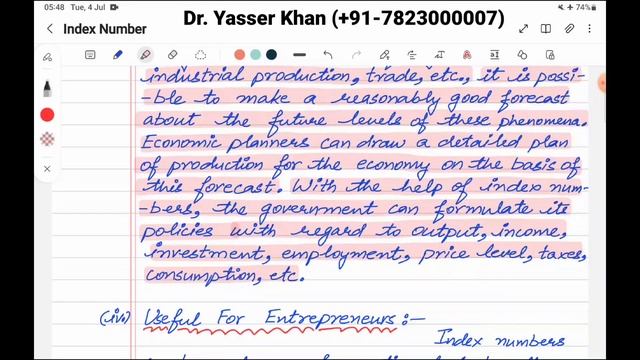 05:48 Tue, 4 Jul
74%
Dr. Yasser Khan (+91-7823000007)
Index Number
industrial production, trade, etc., it is possi-
-ble to make a reasonably good forecast
about the future levels of these phenomena.
Economic planners can draw a detailed plan
of production for the economy on the basis of
this forecast. With the help of index num-
-bers, the government can formulate its
policies with regard to output, income,
investment, employment, price level, taxes,
consumption, etc.
(iv) Useful For Entrepreneurs :—
Index numbers